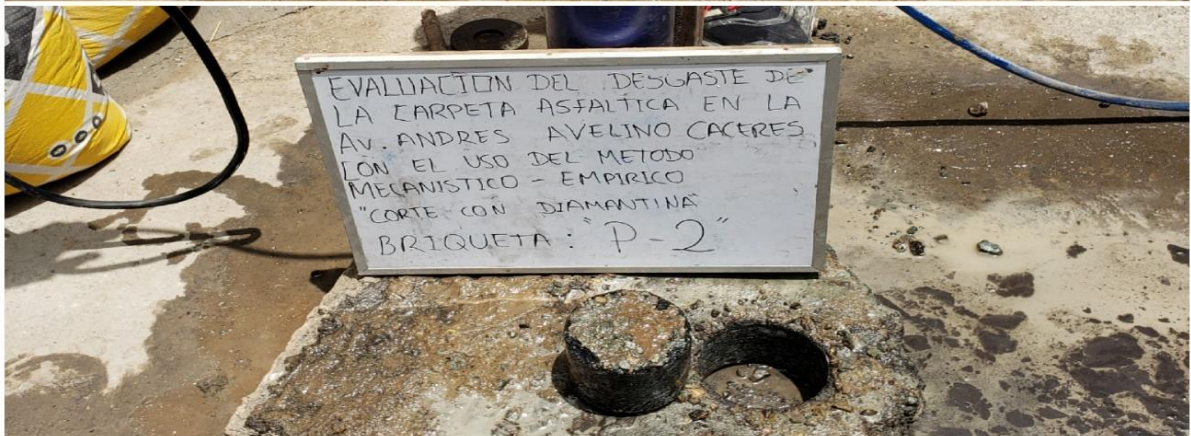 EVALUACION DEL DESGASTE DE
LA CARPETA ASFALTICA EN LA
AV. ANDRES AVELINO CACERES
CON EL USO DEL METODO
MECANISTICO - EMPIRICO
"CORTE CON DIAMANTINA"
BRIQUETA: "P-2"